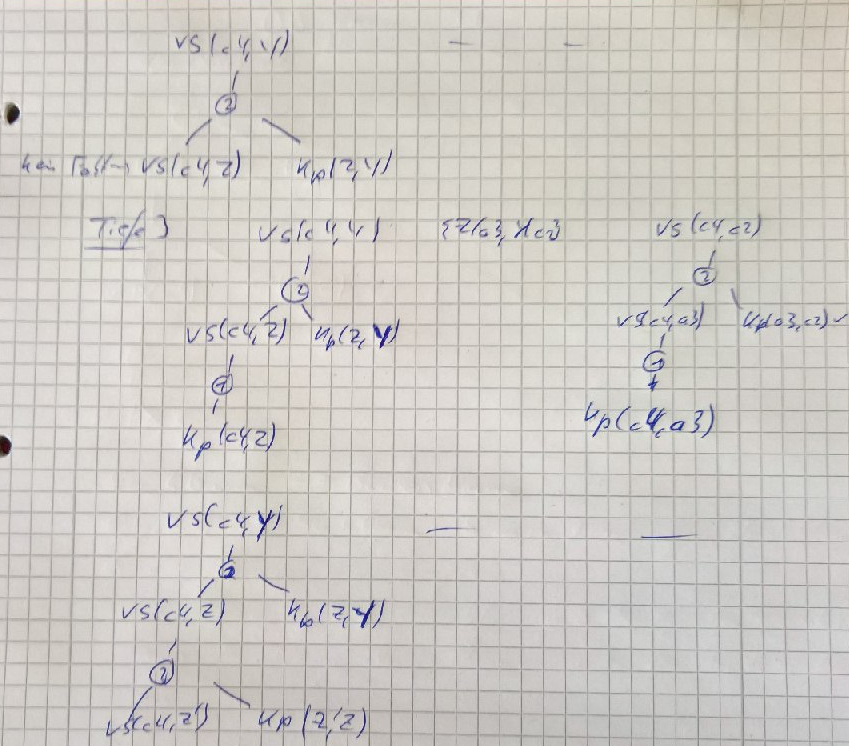 VS(c4,Y) — —
②
kein Fakt→ VS(c4,Z) Kp(Z,Y)
Tiefe 3 VS(c4,Y) {Z/a3, Y/c2} VS(c4,c2)
② ②
VS(c4,Z) Kp(Z,Y) VS(c4,a3) Kp(a3,c2)✓
① ①
Kp(c4,Z) Kp(c4,a3)
VS(c4,Y) — —
②
VS(c4,Z) Kp(Z,Y)
②
VS(c4,Z') Kp(Z',Z)